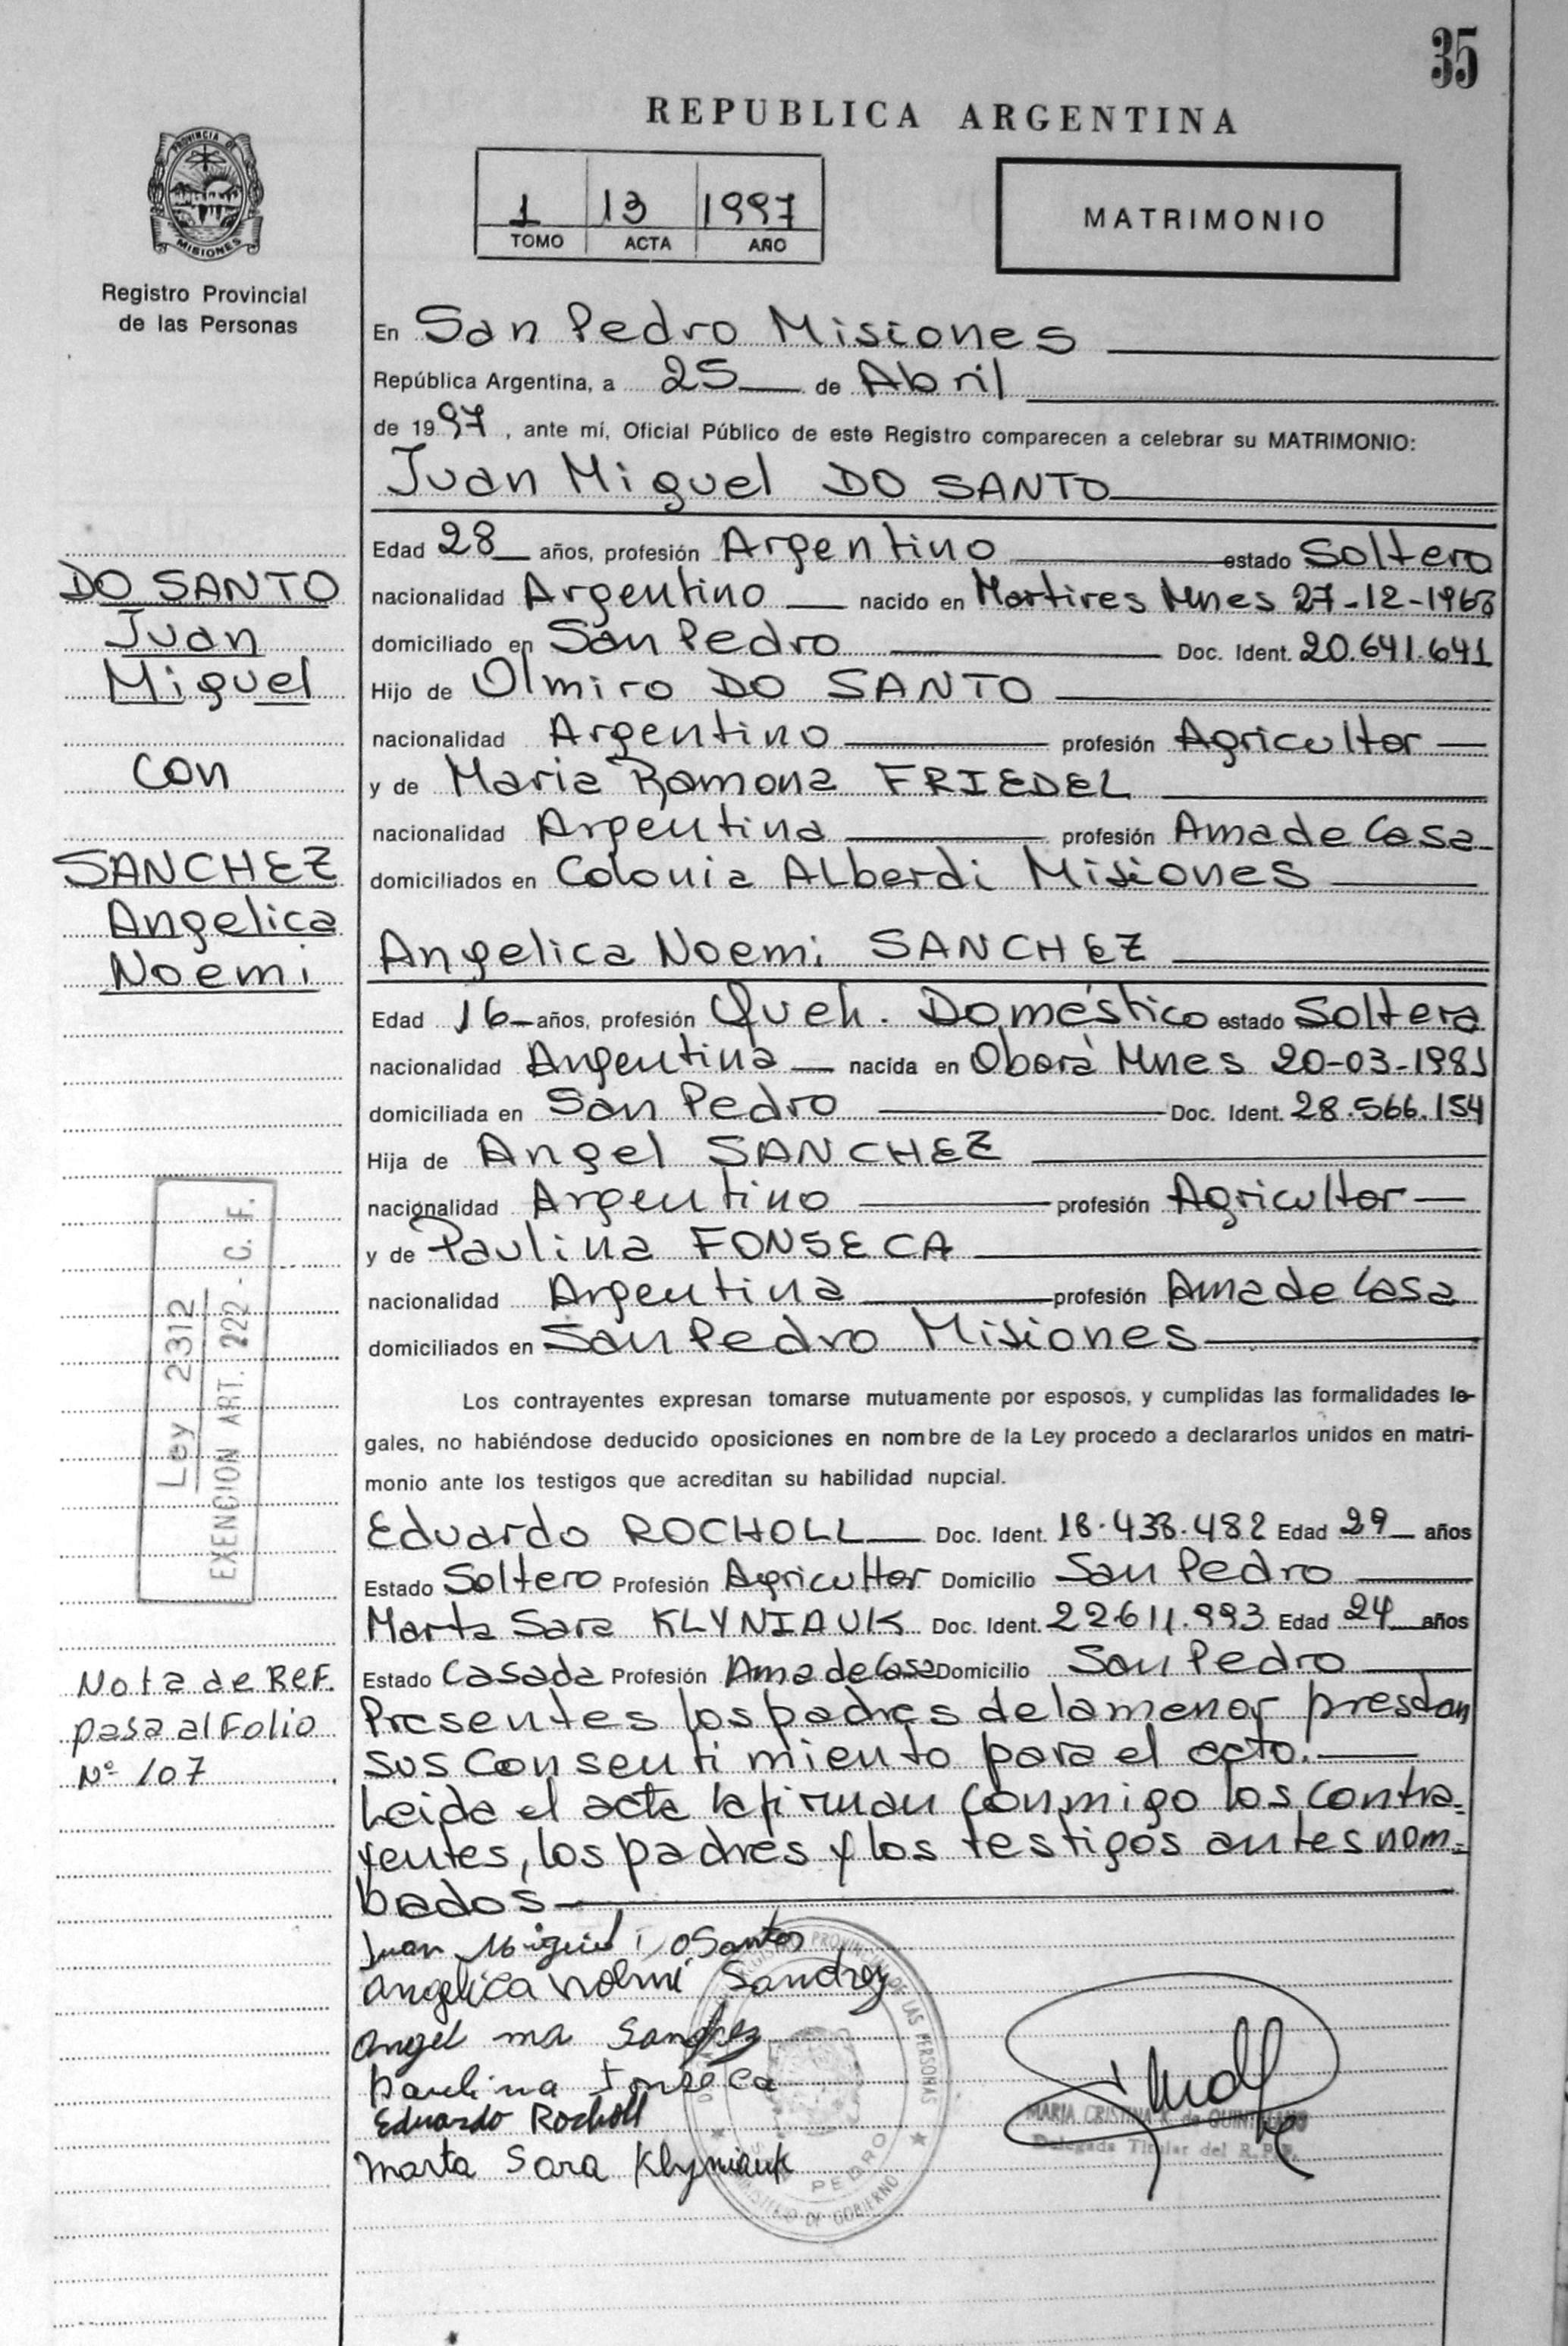 35
REPUBLICA ARGENTINA
PROVINCIA DE
MISIONES
Registro Provincial
de las Personas
1 13 1997
TOMO ACTA AÑO
MATRIMONIO
En San Pedro Misiones
República Argentina, a 25 de Abril
de 1997, ante mí, Oficial Público de este Registro comparecen a celebrar su MATRIMONIO:
Juan Miguel DO SANTO
Edad 28 años, profesión Argentino estado Soltero
nacionalidad Argentino nacido en Martires Mnes 27-12-1968
domiciliado en San Pedro Doc. Ident. 20.641.641
Hijo de Olmiro DO SANTO
nacionalidad Argentino profesión Agricultor
y de Maria Ramona FRIEDEL
nacionalidad Argentina profesión Ama de Casa
domiciliados en Colonia ALberdi Misiones
Angelica Noemi SANCHEZ
Edad 16 años, profesión Queh. Doméstico estado Soltera
nacionalidad Argentina nacida en Oberá Mnes 20-03-1981
domiciliada en San Pedro Doc. Ident. 28.566.154
Hija de Angel SANCHEZ
nacionalidad Argentino profesión Agricultor
y de Paulina FONSECA
nacionalidad Argentina profesión Ama de Casa
domiciliados en San Pedro Misiones
Los contrayentes expresan tomarse mutuamente por esposos, y cumplidas las formalidades le-
gales, no habiéndose deducido oposiciones en nombre de la Ley procedo a declararlos unidos en matri-
monio ante los testigos que acreditan su habilidad nupcial.
Eduardo ROCHOLL Doc. Ident. 18.438.482 Edad 29 años
Estado Soltero Profesión Agricultor Domicilio San Pedro
Marta Sara KLYNIAUK Doc. Ident. 22611.993 Edad 24 años
Estado Casada Profesión Ama de Casa Domicilio San Pedro
Presentes los padres de la menor prestan
sus consentimiento para el acto.
Leida el acta la firman conmigo los contra=
yentes, los padres y los testigos antes nom=
bados
Juan Miguel Do Santos
Angelica Noemi Sanchez
Angel ma Sanchez
Paulina Fonseca
Eduardo Rocholl
Marta Sara Klyniauk
REGISTRO PROVINCIAL DE LAS PERSONAS
PEDRO
MINISTERIO DE GOBIERNO
MARIA CRISTINA K. de
Delegada Titular del R.P.P.
DO SANTO
Juan
Miguel
con
SANCHEZ
Angelica
Noemi
Ley 2312
EXENCION ART. 222 - C. F.
Nota de REF.
pasa al Folio
Nº 107